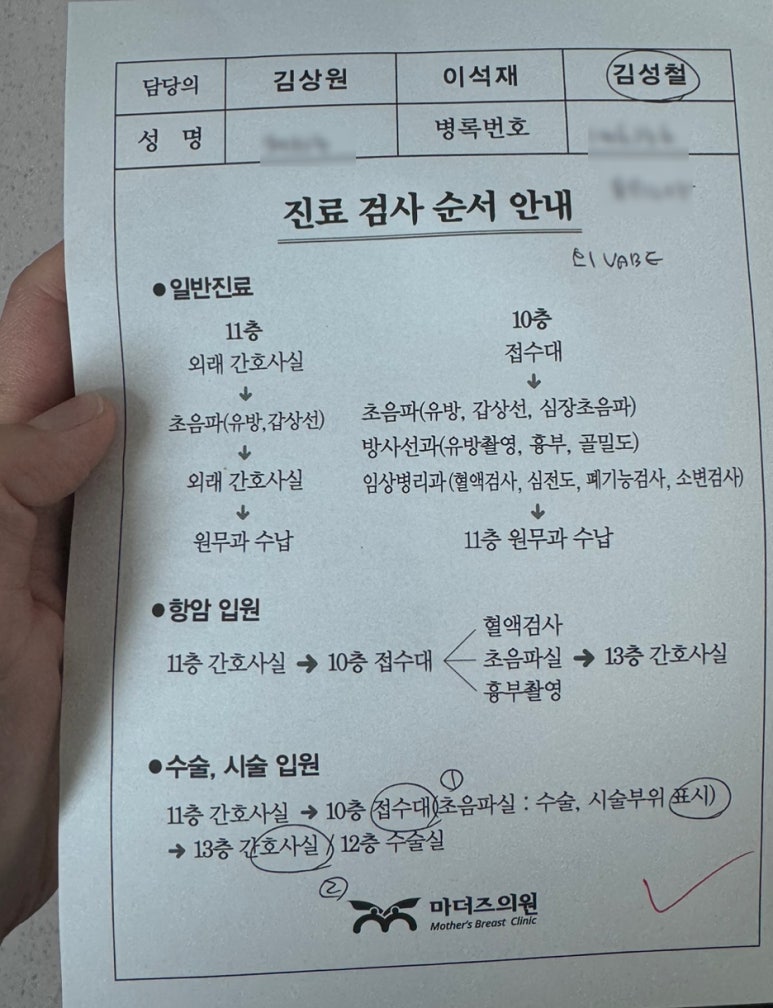 담당의 김상원 이석재 김성철
성 명 병록번호
진료 검사 순서 안내
VABE
●일반진료
11층
외래 간호사실
↓
초음파(유방,갑상선)
↓
외래 간호사실
↓
원무과 수납
10층
접수대
↓
초음파(유방, 갑상선, 심장초음파)
방사선과(유방촬영, 흉부, 골밀도)
임상병리과(혈액검사, 심전도, 폐기능검사, 소변검사)
↓
11층 원무과 수납
●항암 입원
11층 간호사실 → 10층 접수대
혈액검사
초음파실
흉부촬영
→ 13층 간호사실
●수술, 시술 입원
①
11층 간호사실 → 10층 접수대(초음파실 : 수술, 시술부위 표시)
→ 13층 간호사실 / 12층 수술실
②
마더즈의원
Mother's Breast Clinic